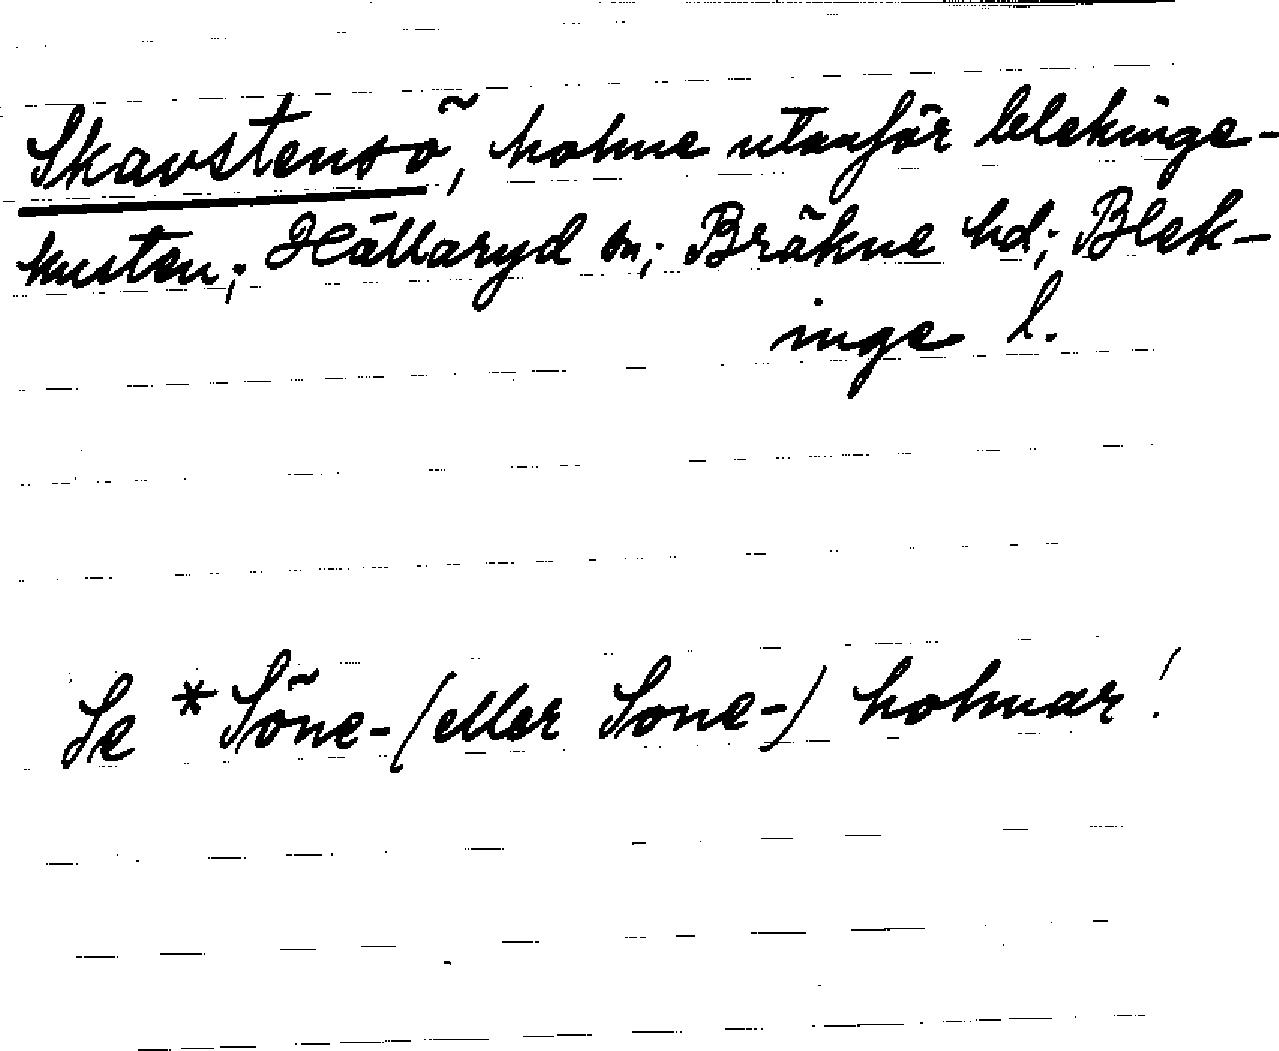 Skavstensö, holme utanför blekinge-
kusten; Hällaryd sn; Bräkne hd; Blek-
inge l.
Se *Söne- (eller Sone-) holmar!